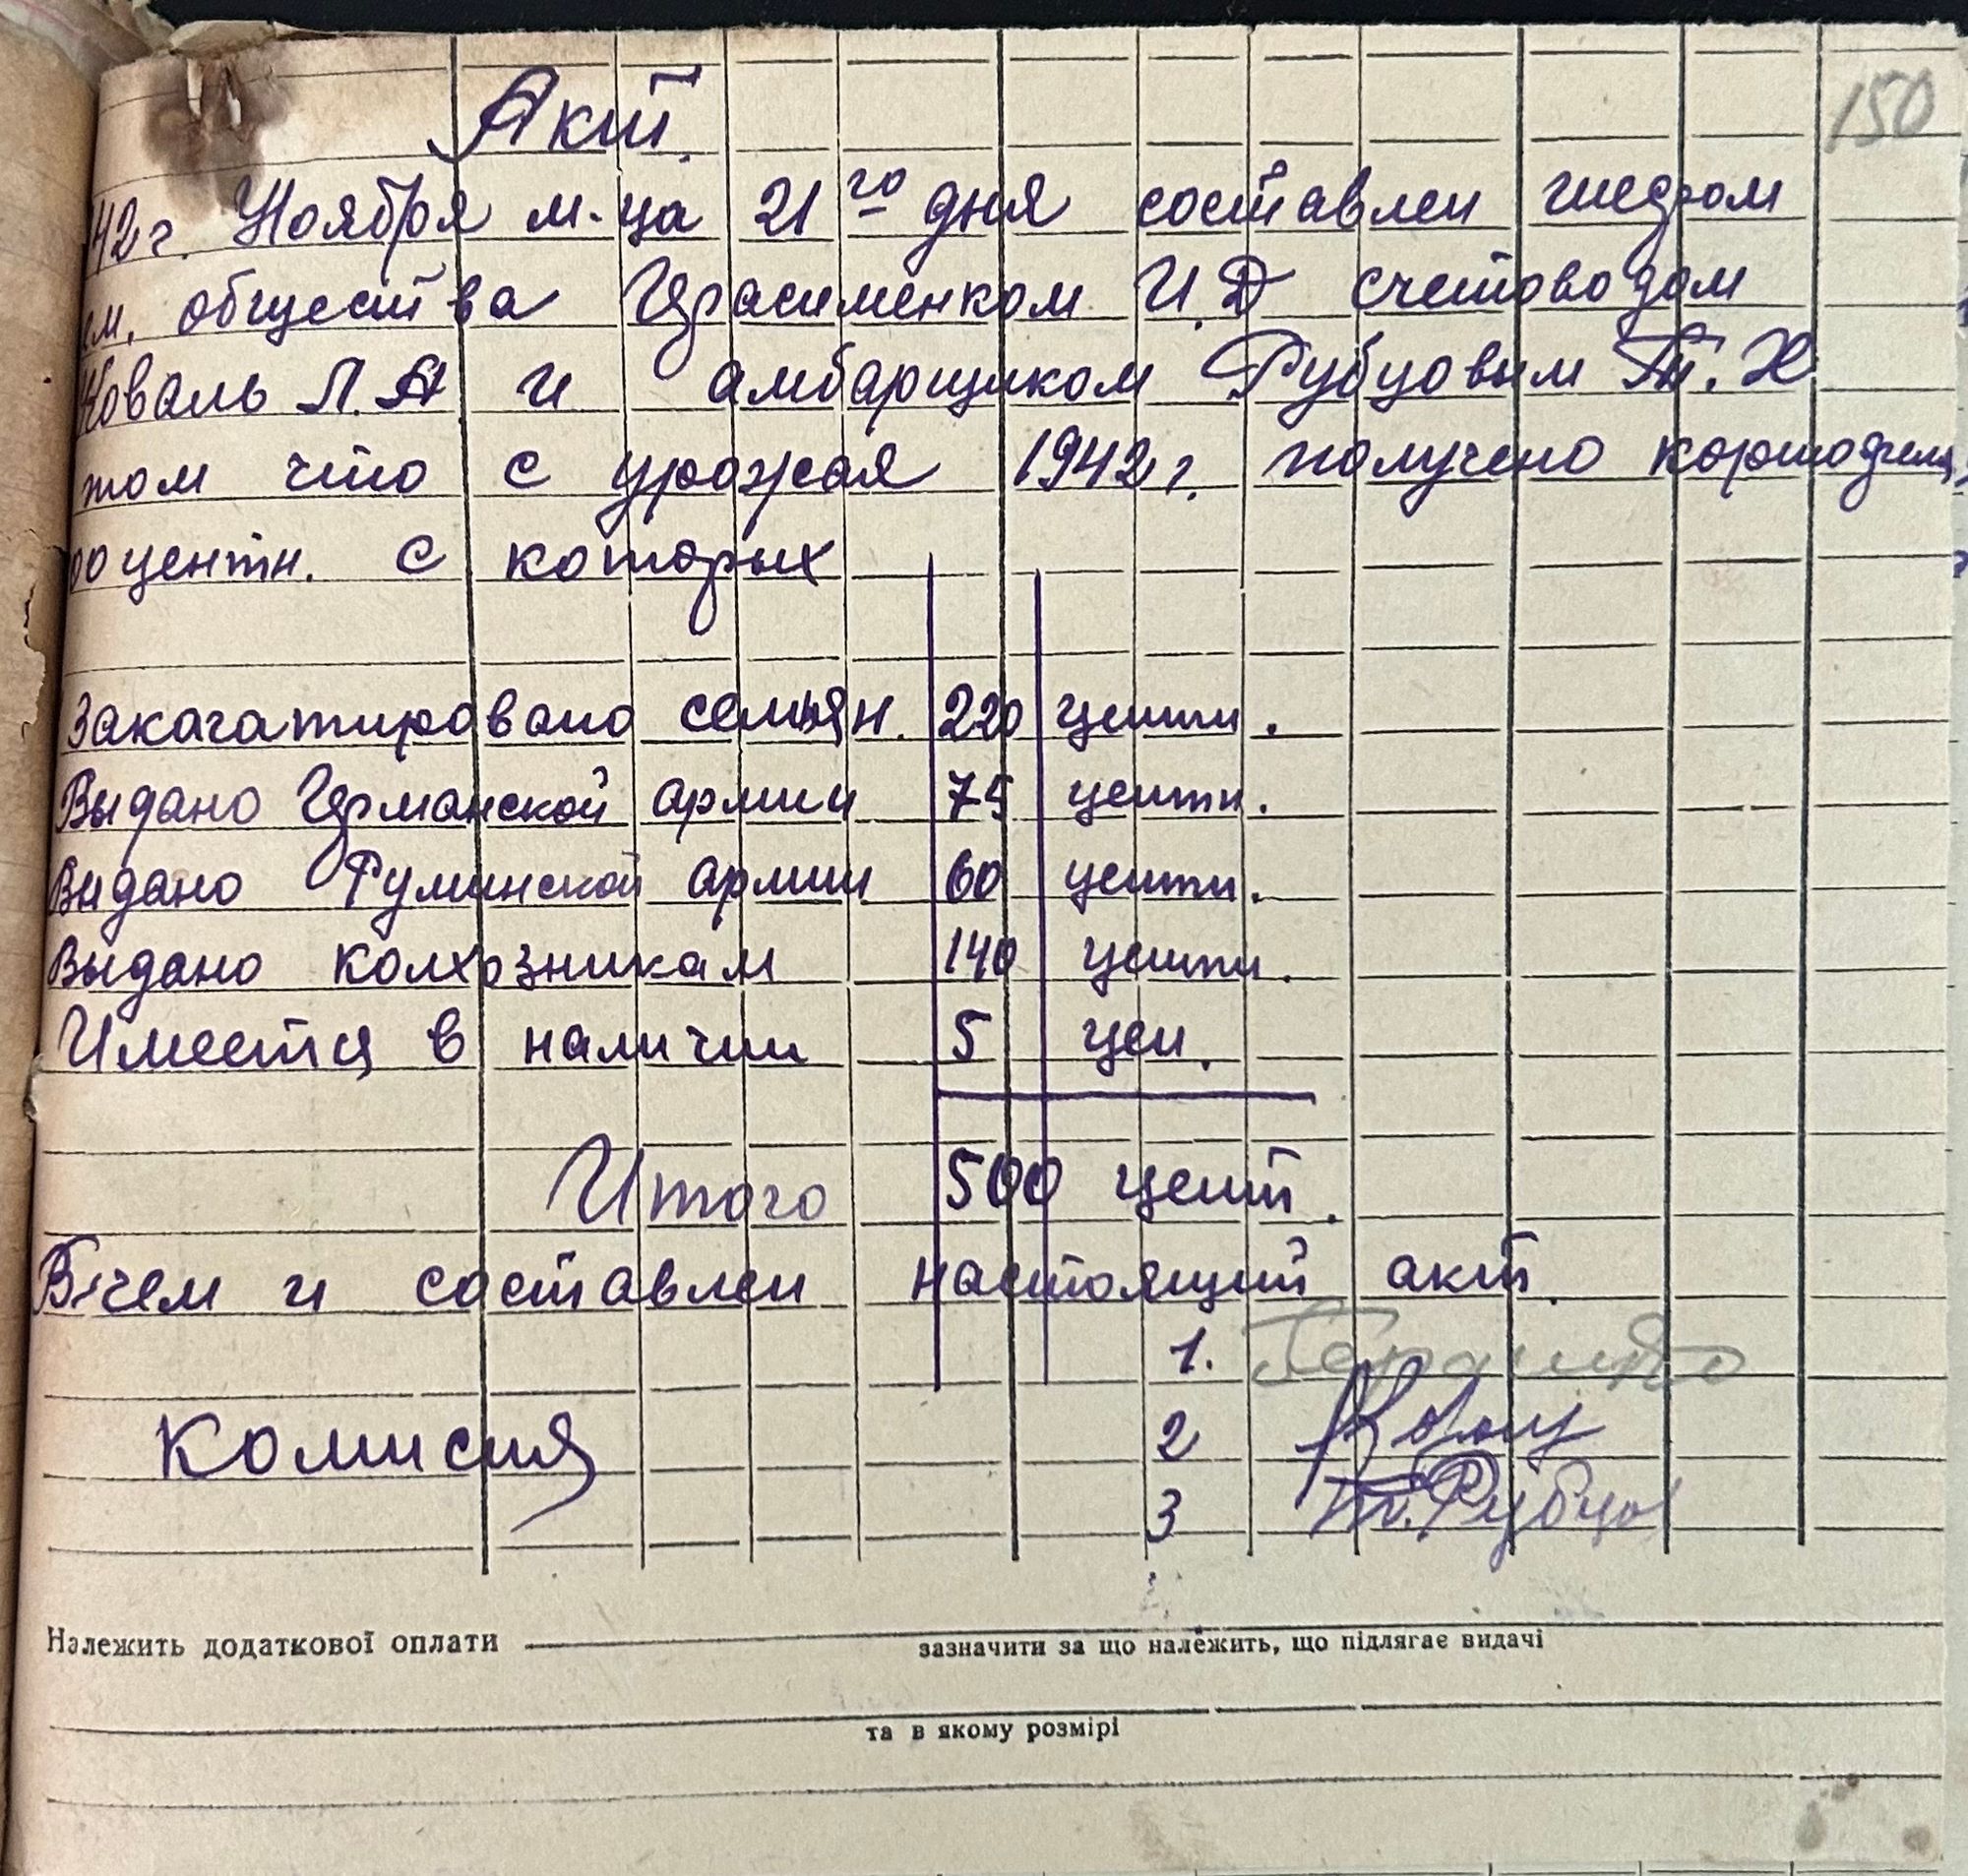 Акт.
150
42 г. Ноября м-ца 21го дня составлен шефом
ем. общества Герасименком И.Д счетоводом
Коваль Л.А и амбарщиком Рубцовым Т.Х
том что с урожая 1942 г. получено
00 центн. с которых
Закагатировано семьян. 220 центн.
Выдано Германской армии 75 центн.
Выдано Румынской армии 60 центн.
Выдано колхозникам 140 центн.
Имеетця в наличии 5 цен.
Итого 500 цент.
В чем и составлен настоящий акт.
1.
Комисия 2
3 Т. Рубцов
Належить додаткової оплати
зазначити за що належить, що підлягає видачі
та в якому розмірі